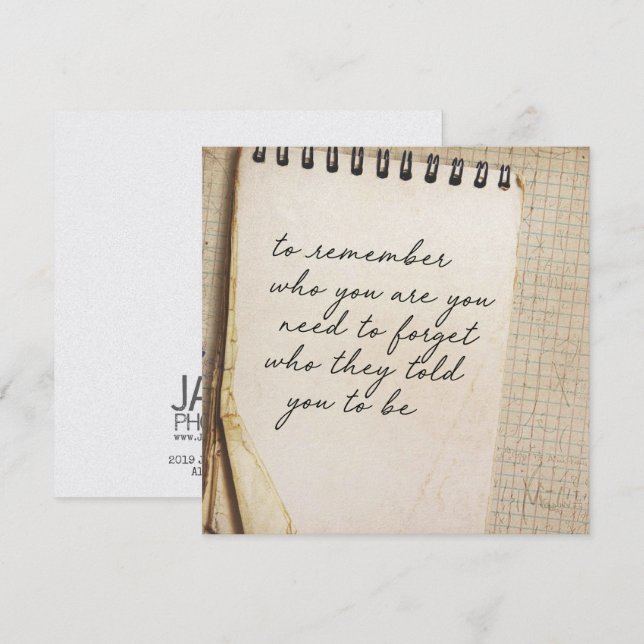 to remember
who you are you
need to forget
who they told
you to be
JA
PHO
www.J
2019 J
Al